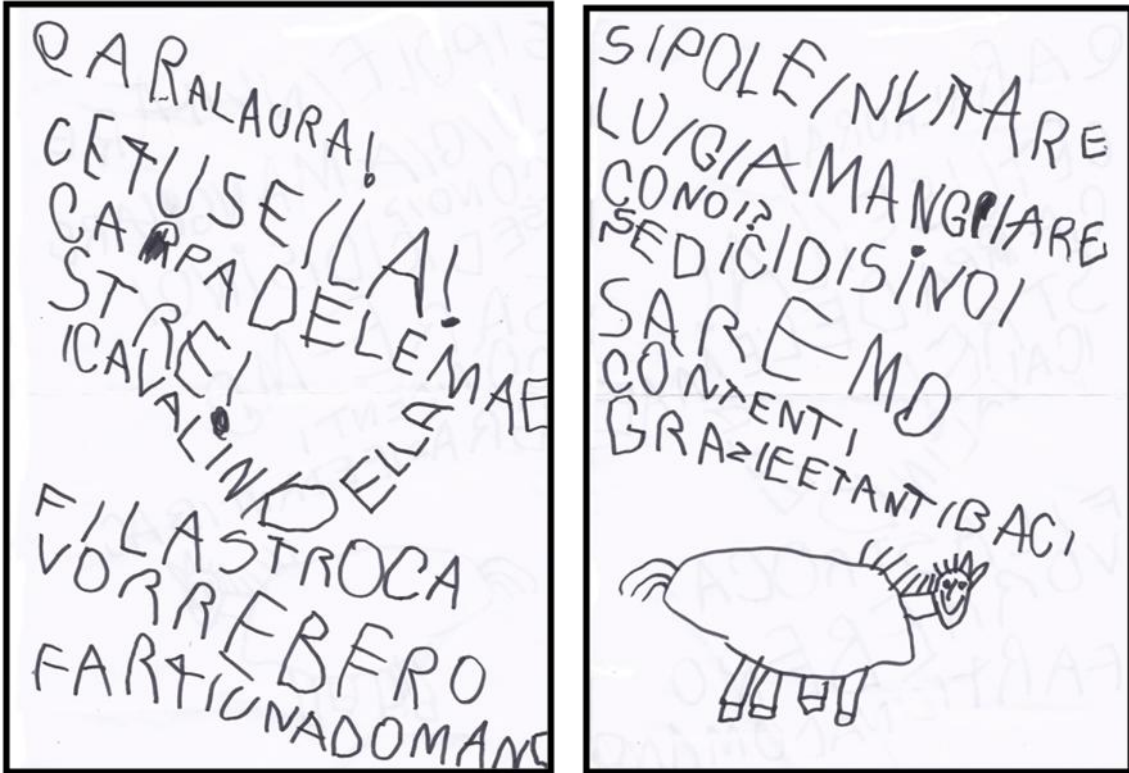 QARALAURA!
CETUSEILA!
CAPADELEMAE
STREI
ICAVALINODELLA
FILASTROCA
VORREBERO
FARTIUNADOMAND
SIPOLEINVITARE
LUIGIAMANGIARE
CONOI?
SEDICIDISINOI
SAREMO
CONTENTI
GRAZIEETANTIBACI